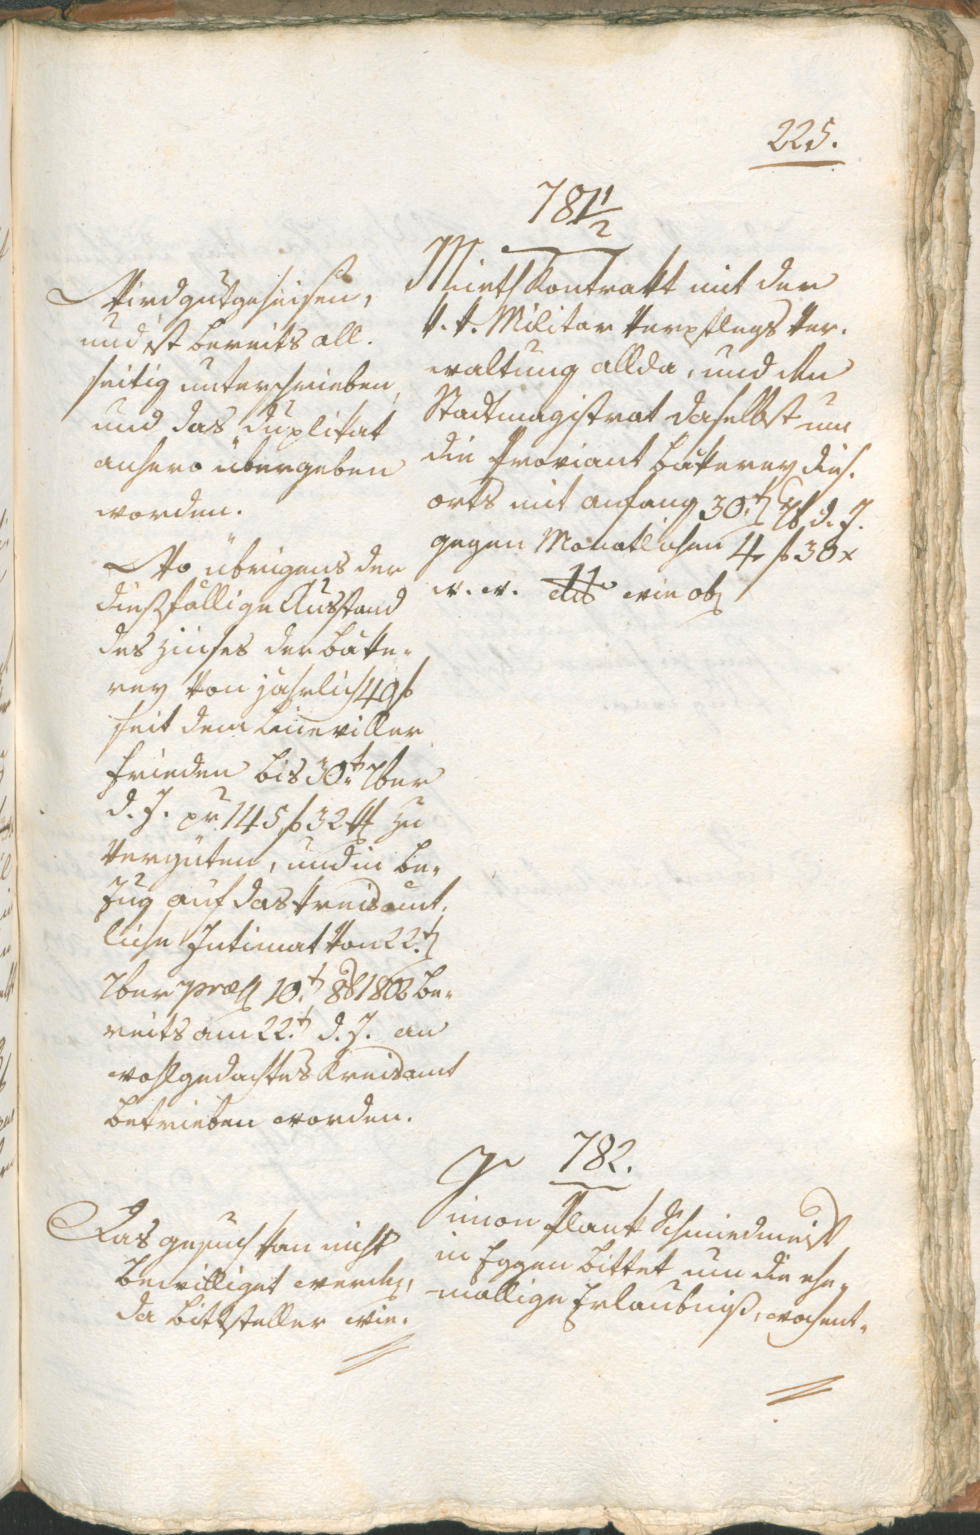 225.
781 1/2
Mieth Kontrakt mit der
k. k. Militar Verpflegs Ver-
waltung allda, und den
Stadtmagistrat daselbst um
die Proviant bäkerey dies-
orts mit anfang 30.t 7b d. J.
gegen Monatlichen 4 f 30 x
w. w. wie obs
Wird gutgeheisen,
und ist bereits all-
seitig unterschrieben,
und das Duplikat
anhero übergeben
worden.
Wo übrigens der
dießfällige Ausstand
des Zinses der bäke-
rey von jährlich 40 f
seit dem Lüneviller
Frieden bis 30.t 7ber
d. J. pr 145 f 32 zu
vergüten, und in be-
zug auf das Kreisamt-
liche Intimat von 22.t
7ber præs 10.t 8b 1802 be-
reits am 22.t d. J. an
wohlgedachtes Kreisamt
betrieben worden.
782.
Simon Plank Schmiedmeist
in Eggen bittet um die ehe-
mallige Erlaubniß, wochent-
Das gesuch kan nicht
bewilliget werden,
da bittsteller wie-